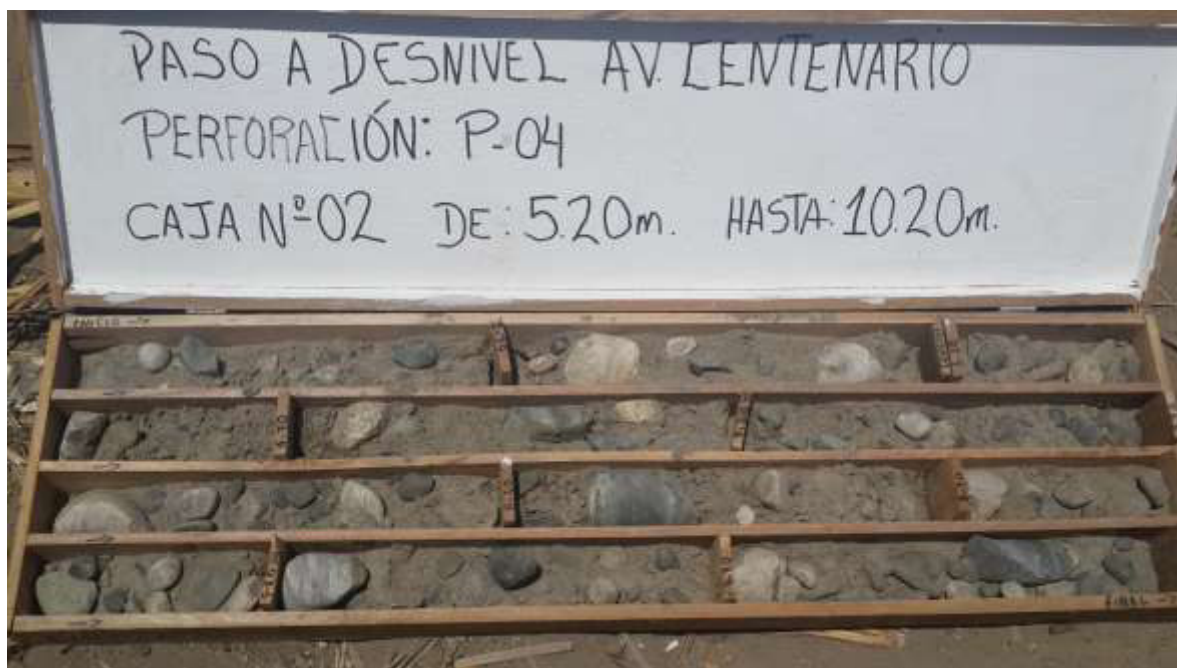 PASO A DESNIVEL AV. CENTENARIO
PERFORACIÓN: P-04
CAJA Nº02 DE: 5.20m. HASTA: 10.20m.
INICIO
FINAL